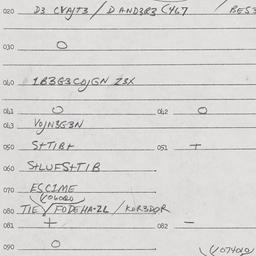 020 D3 CVAJT3 / DAND3R3 C467 / BES3
030 O
040 1B3G3COJGN Z3X
041 O 042 O
043 VOJN3G3N
050 S+TIB+ 051 +
060 S+LUFS+TIB
070 ESCIME
(/06020)
080 TIE / FODEHA-2L / KOR3DOR
081 + 082 -
090 O (/074010